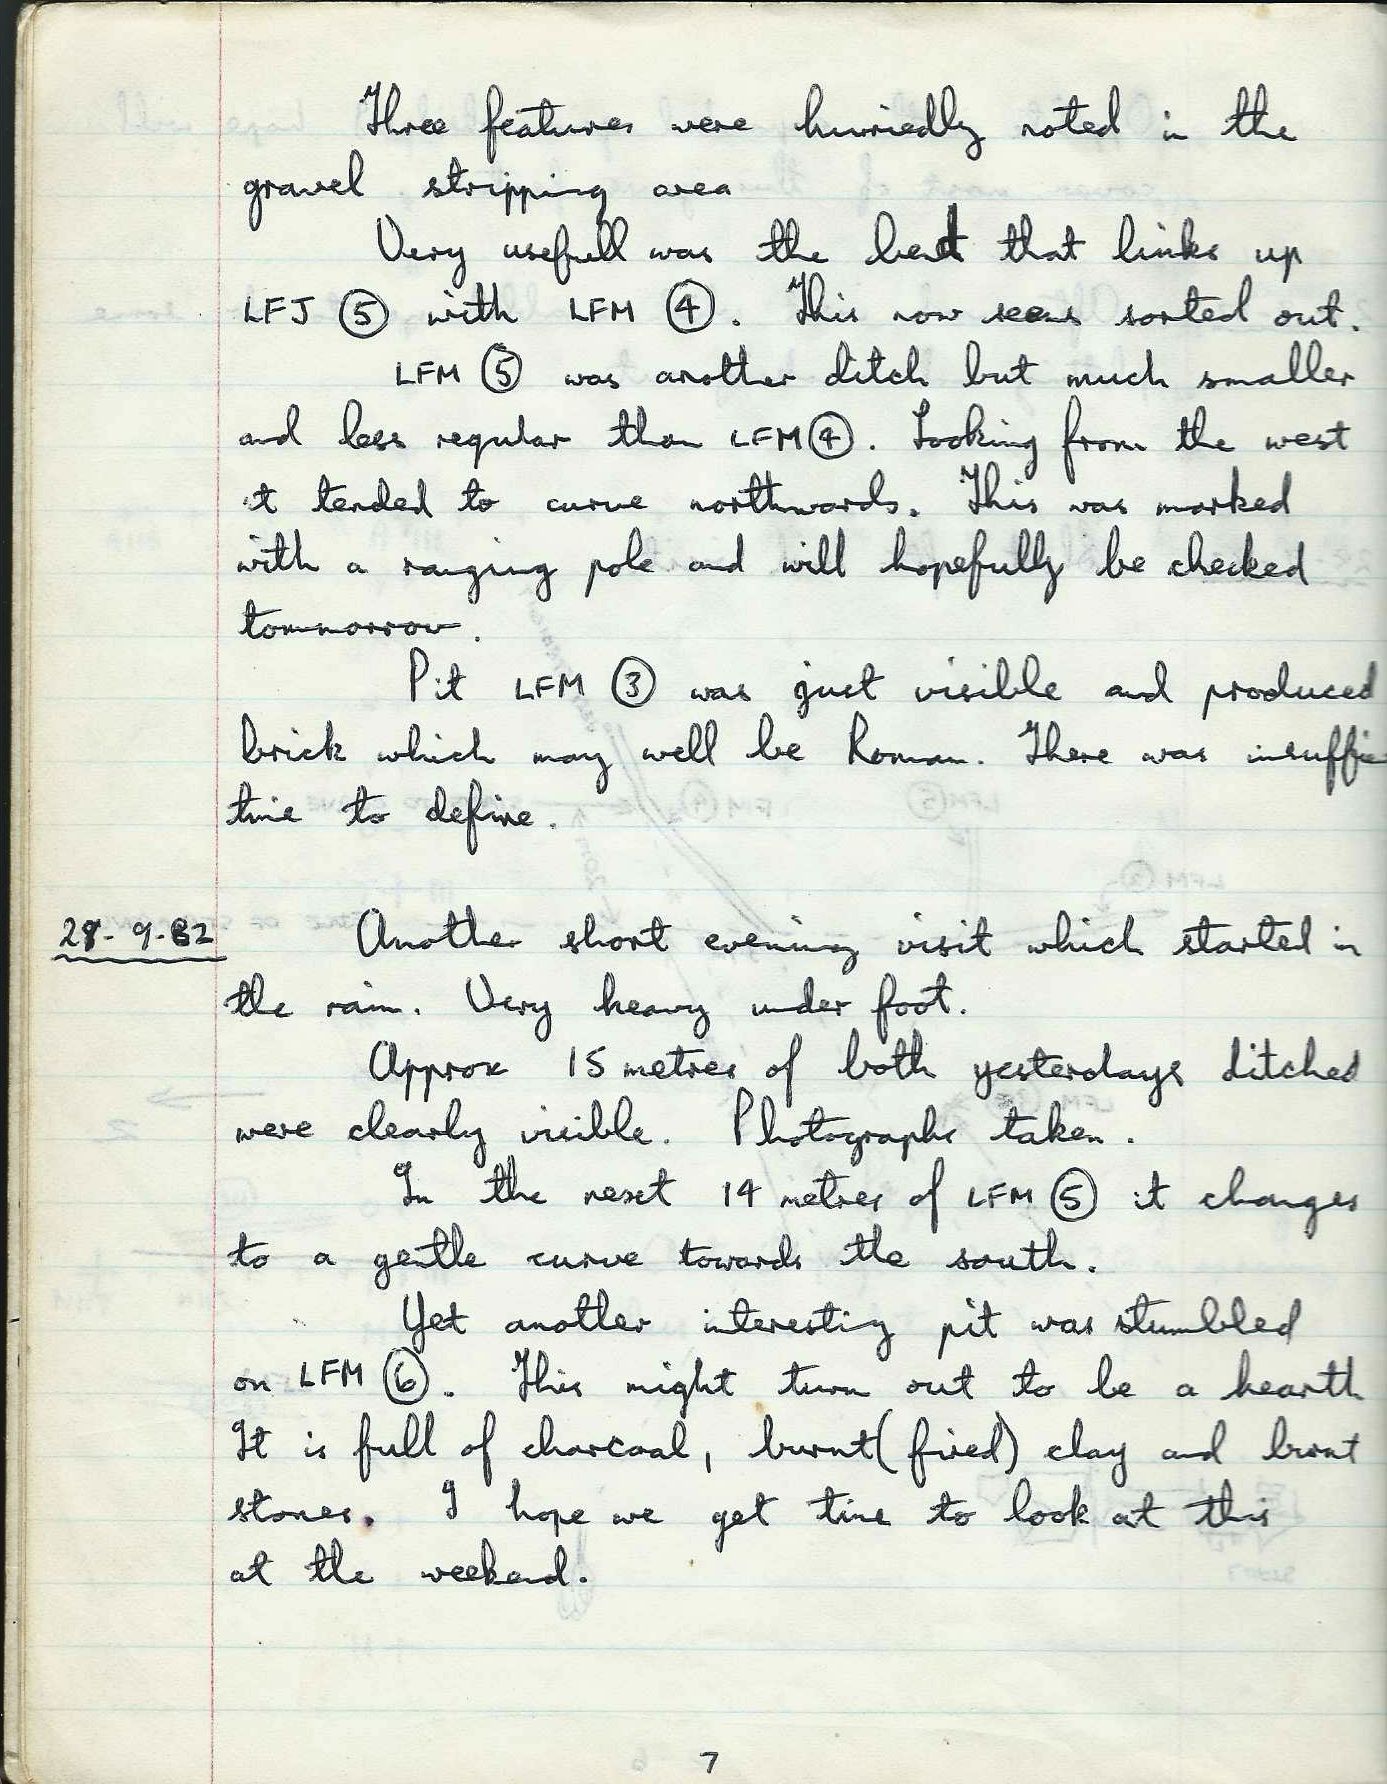 Three features were hurriedly noted in the
gravel stripping area
Very usefull was the bend that links up
LFJ ⑤ with LFM ④. This now seems sorted out.
LFM ⑤ was another ditch but much smaller
and less regular than LFM ④. Looking from the west
it tended to curve northwards. This was marked
with a ranging pole and will hopefully be checked
tommorrow.
Pit LFM ③ was just visible and produced
brick which may well be Roman. There was insuffic
time to define.
28-9-82 Another short evening visit which started in
the rain. Very heavy under foot.
Approx 15 metres of both yesterdays ditched
were clearly visible. Photographs taken.
In the next 14 metres of LFM ⑤ it changes
to a gentle curve towards the south.
Yet another interesting pit was stumbled
on LFM ⑥. This might turn out to be a hearth
It is full of charcoal, burnt (fired) clay and burnt
stones. I hope we get time to look at this
at the weekend.
7